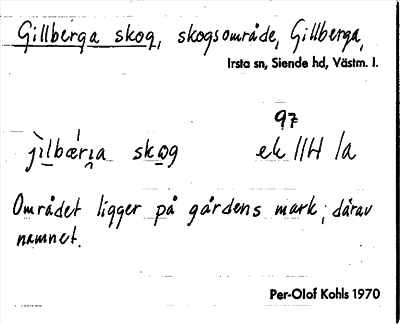 Gillberga skog, skogsområde, Gillberga,
Irsta sn, Siende hd, Västm. l.
97
jìlbær̀ɩa skog ek 11H 1a
Området ligger på gårdens mark; därav
namnet.
Per-Olof Kohls 1970